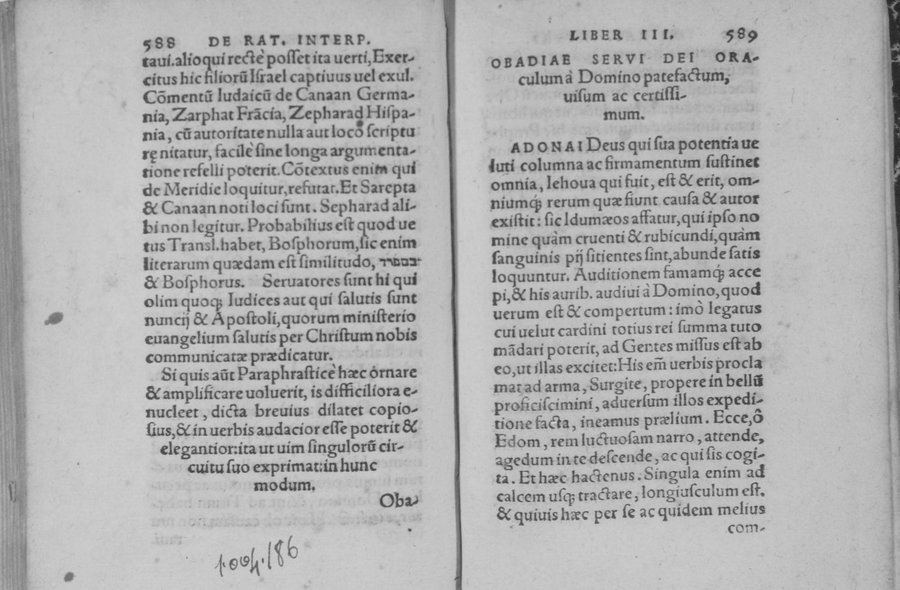 588 DE RAT. INTERP.
taui. alioqui rectè posset ita uerti, Exer-
citus hic filiorũ Israel captiuus uel exul.
Cõmentũ Iudaicũ de Canaan Germa-
nia, Zarphat Frãcia, Zepharad Hispa-
nia, cũ autoritate nulla aut loco scriptu
rę nitatur, facile sine longa argumenta-
tione refelli poterit. Cõtextus enim qui
de Meridie loquitur, refutat. Et Sarepta
& Canaan noti loci sunt. Sepharad ali-
bi non legitur. Probabilius est quod ue
tus Transl. habet, Bosphorum, sic enim
literarum quædam est similitudo,
& Bosphorus. Seruatores sunt hi qui
olim quoq; Iudices aut qui salutis sunt
nuncij & Apostoli, quorum ministerio
euangelium salutis per Christum nobis
communicatæ prædicatur.
Si quis aũt Paraphrasticè hæc ornare
& amplificare uoluerit, is difficiliora e-
nucleet, dicta breuius dilatet copio-
sius, & in uerbis audacior esse poterit &
elegantior: ita ut uim singulorũ cir-
cuitu suo exprimat: in hunc
modum.
Oba-
1.004.186
LIBER III. 589
OBADIAE SERVI DEI ORA-
culum à Domino patefactum,
uisum ac certissi-
mum.
ADONAI Deus qui sua potentia ue
luti columna ac firmamentum sustinet
omnia, Iehoua qui fuit, est & erit, om-
niumq́; rerum quæ fiunt causa & autor
existit: sic Idumæos affatur, qui ipso no
mine quàm cruenti & rubicundi, quàm
sanguinis prij sitientes sint, abunde satis
loquuntur. Auditionem famamq́; acce
pi, & his aurib. audiui à Domino, quod
uerum est & compertum: imò legatus
cui uelut cardini totius rei summa tuto
mãdari poterit, ad Gentes missus est ab
eo, ut illas excitet: His em̃ uerbis procla
mat ad arma, Surgite, propere in bellũ
proficiscimini, aduersum illos expedi-
tione facta, ineamus prælium. Ecce, ô
Edom, rem luctuosam narro, attende,
agedum in te descende, ac qui sis cogi-
ta. Et hæc hactenus. Singula enim ad
calcem usq; tractare, longiusculum est.
& quiuis hæc per se ac quidem melius
com-